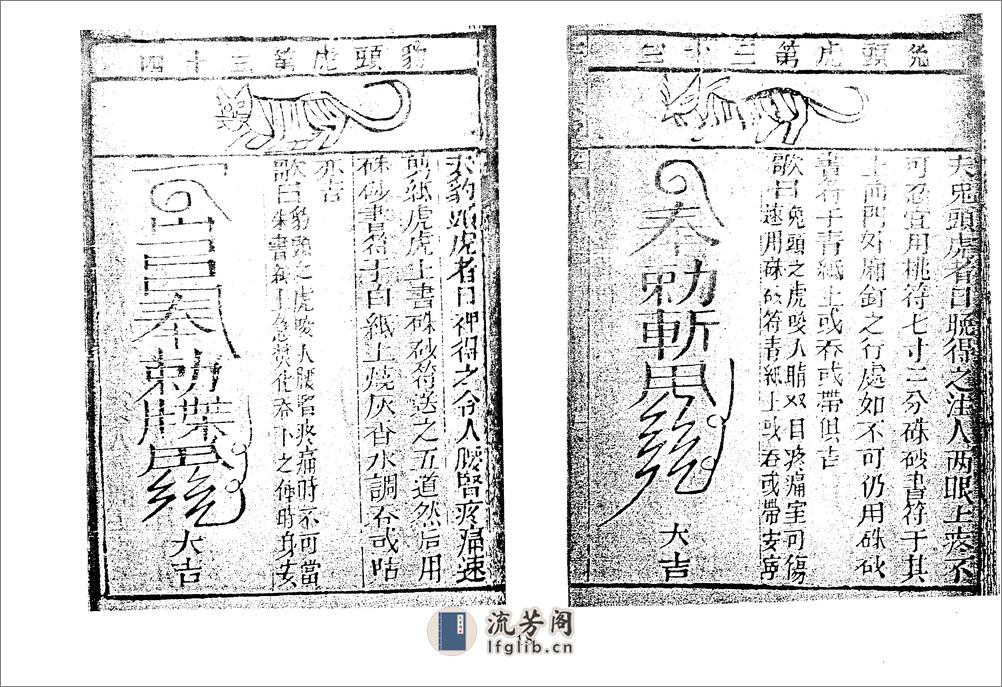 兔頭虎第三十三
夫兎頭虎者日晚得之注人两眼上疼不
可忍宜用桃符七寸二分硃砂書符于其
上前門外廂釘之行處如不可仍用硃砂
書符于青紙上或吞或帶俱吉
歌曰兔頭之虎咬人睛双目疼痛室可傷
速用硃砂符青紙上或吞或帶安寧
奉勅斬
大吉
豹頭虎第三十四
夫豹頭虎者日神得之令人腰腎疼痛速
剪紙虎虎上書硃砂符送之五道然后用
硃砂書符于白紙上燒灰香水調吞或帖
亦吉
歌曰豹頭之虎咬人腰腎疼痛時不可當
朱書符上急焚化吞下之伸時身安
奉勅牒
大吉
流芳阁
lfglib.cn